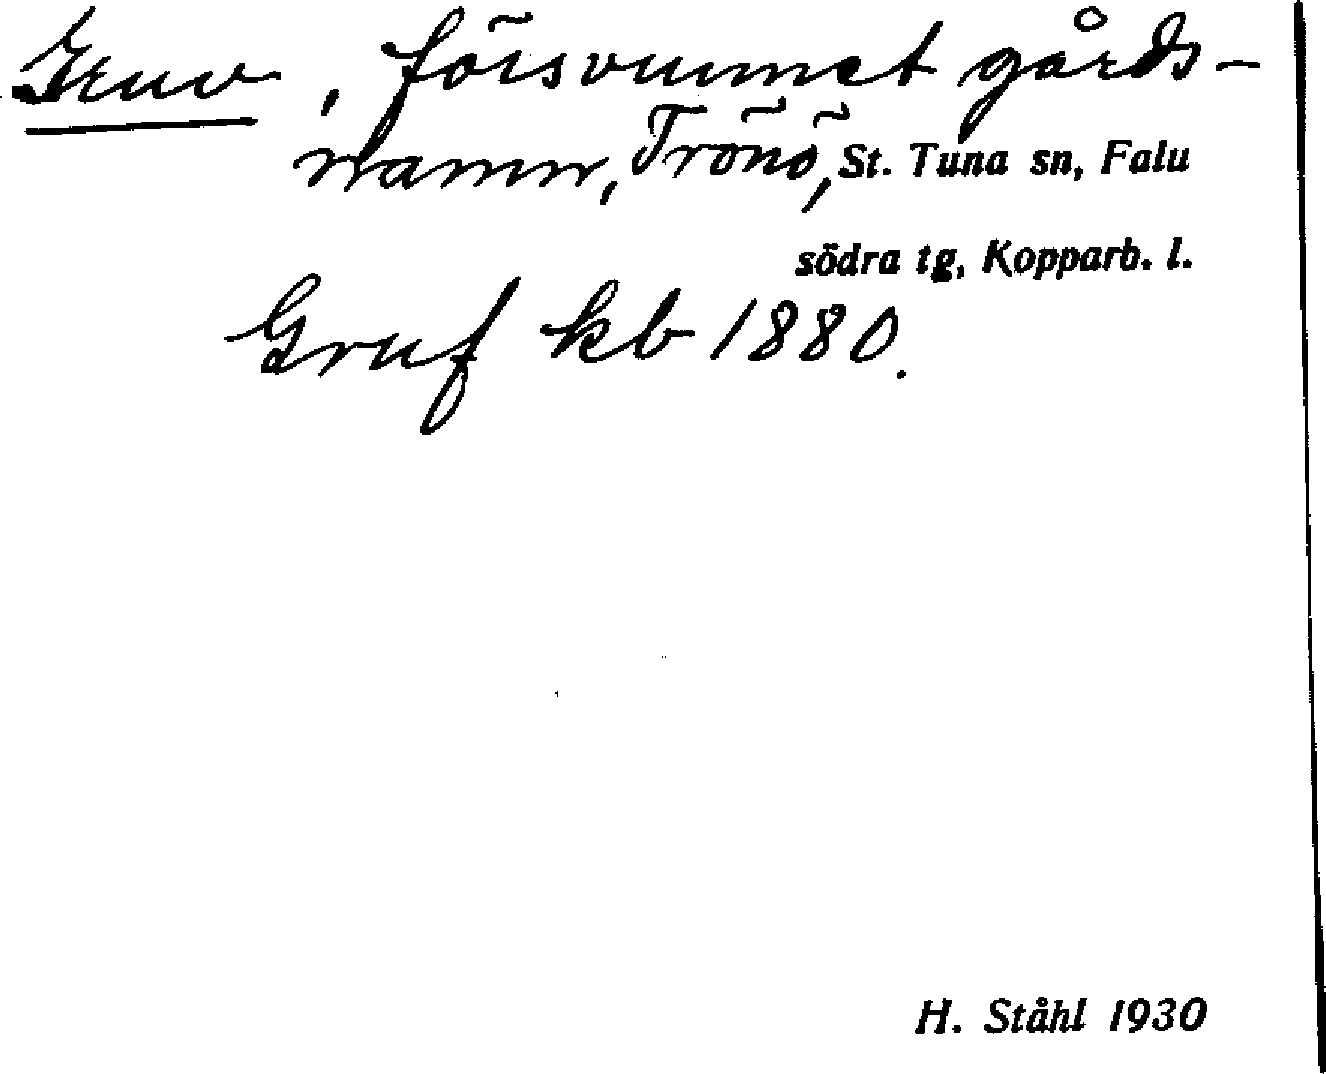 Gruv, försvunnet gårds-
namn, Trönö, St. Tuna sn, Falu
södra tg, Kopparb. l.
Gruf kb 1880.
H. Ståhl 1930